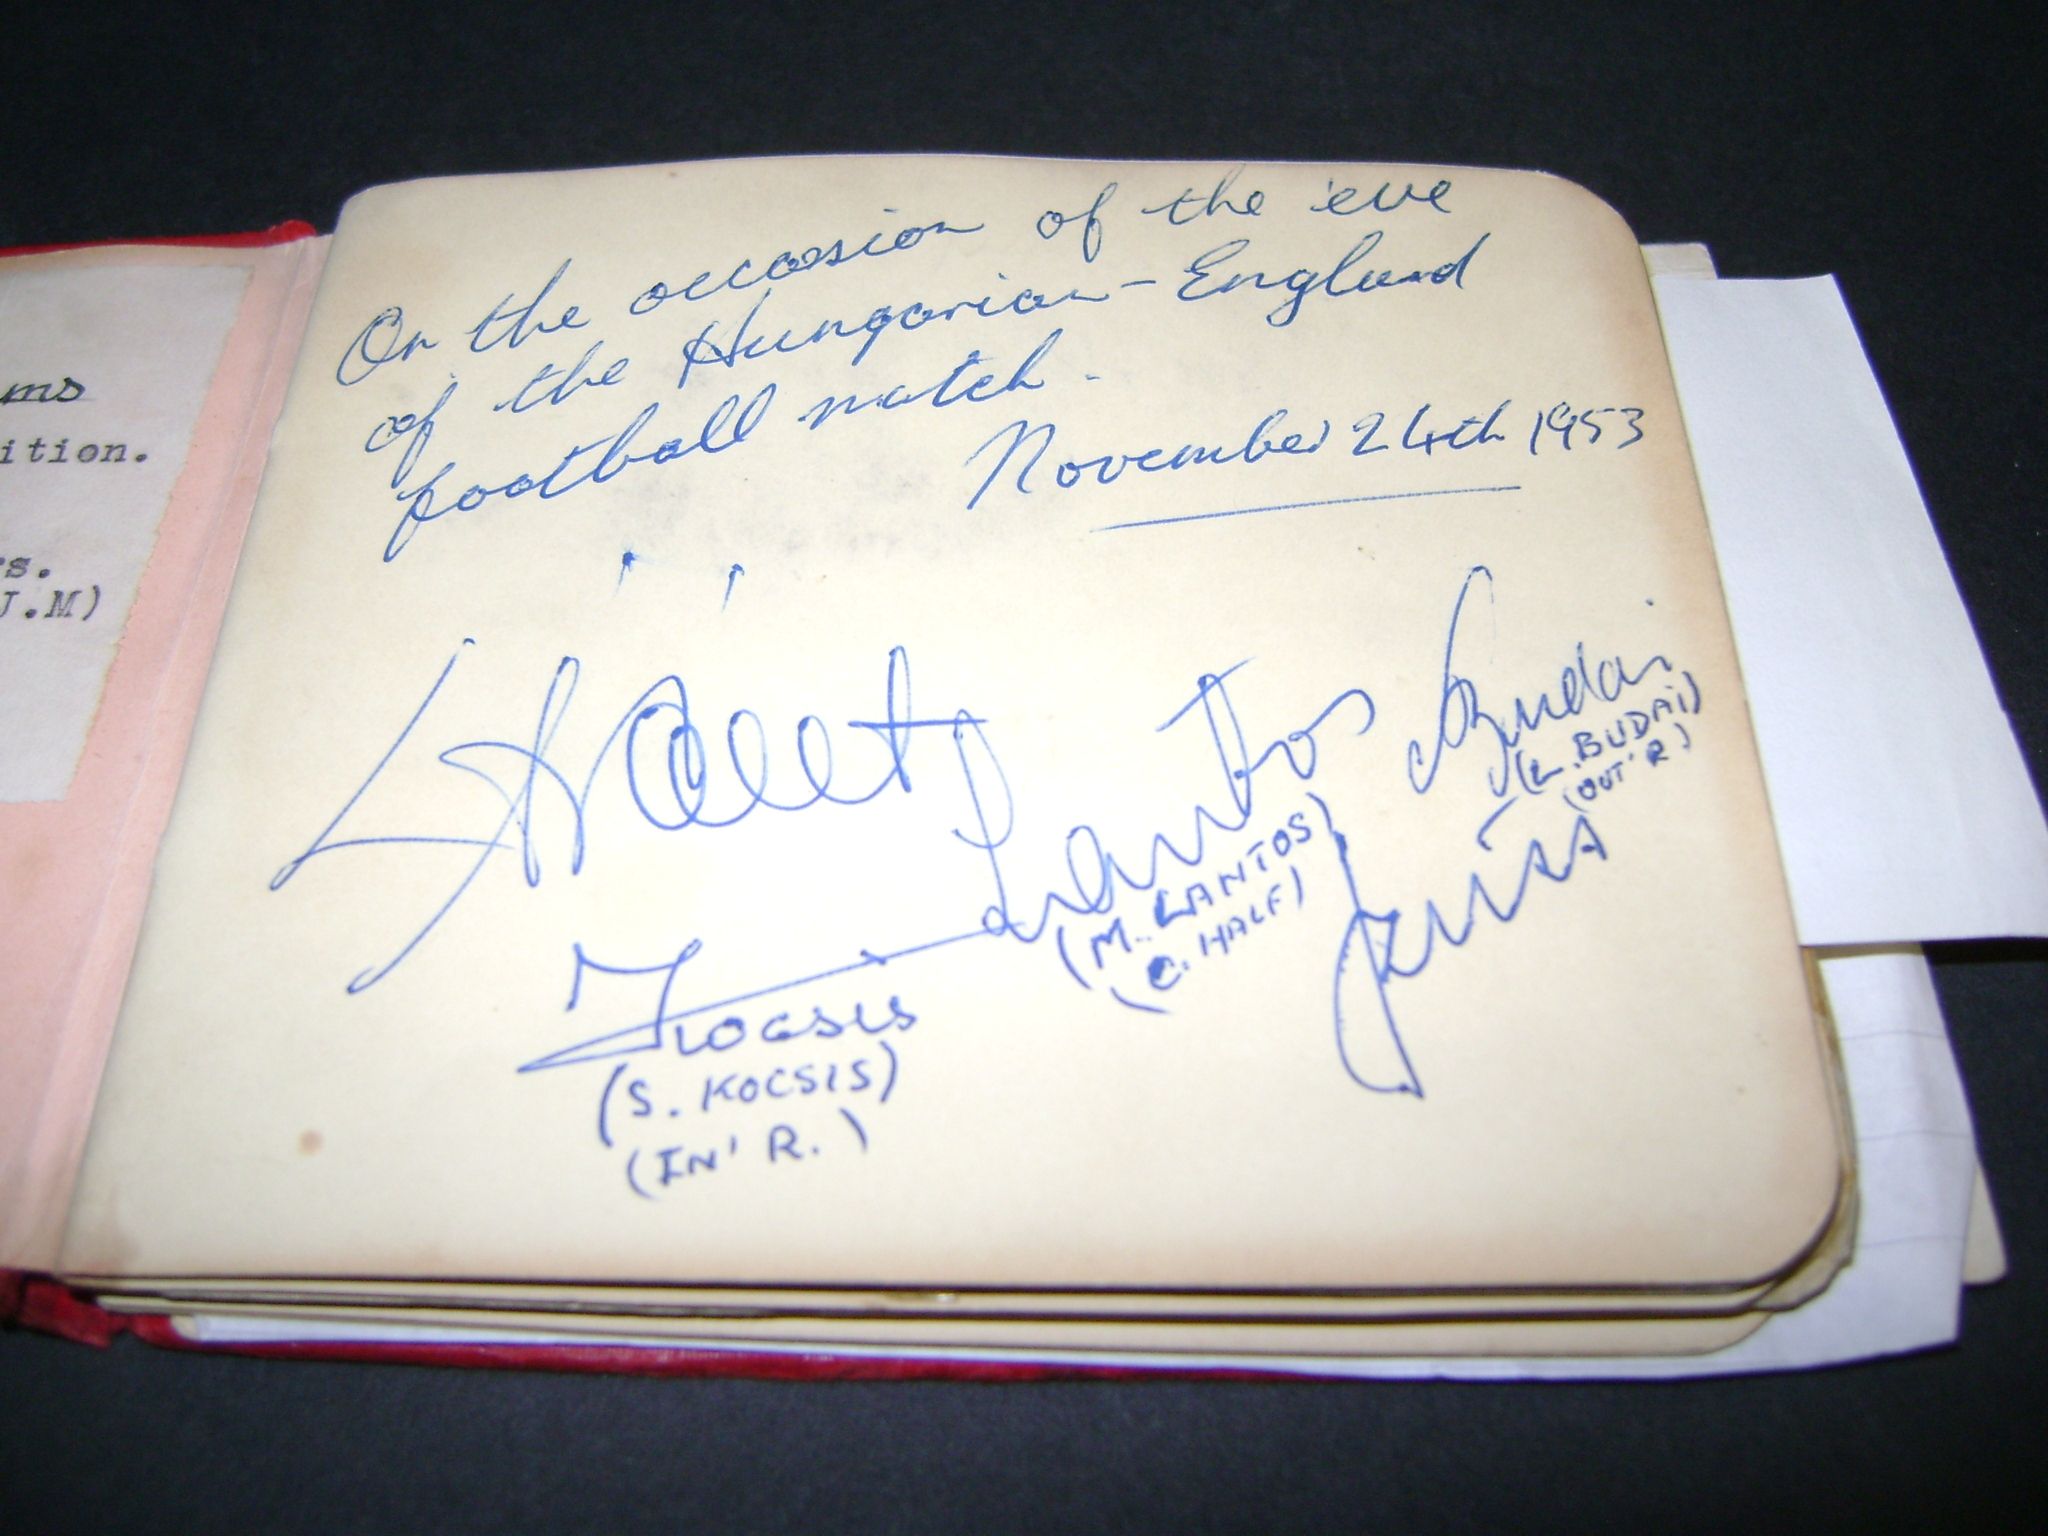 ms
ition.
s.
J.M)
On the occasion of the 'eve
of the Hungarian - England
football match.
November 24th 1953
Lantos
Budai
(L. BUDAI)
(OUT' R)
(M. LANTOS)
(C. HALF)
Kocsis
(S. KOCSIS)
(IN' R.)